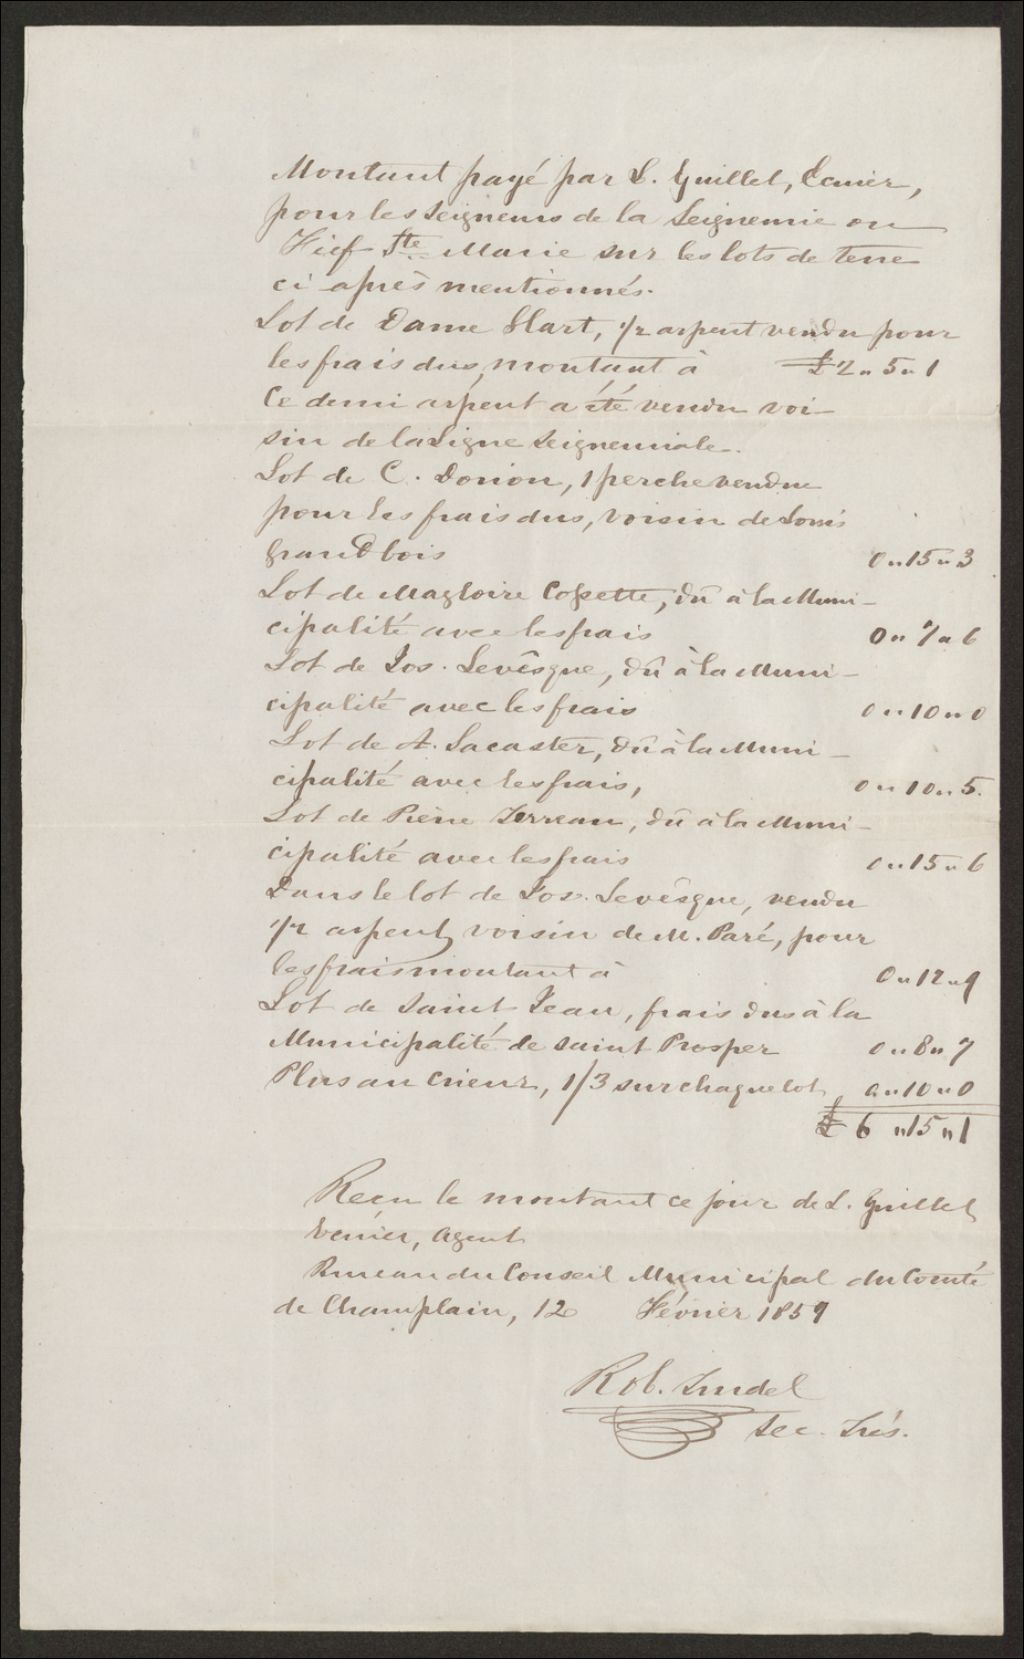 Montant payé par L. Guillet, Ecuier,
pour les Seigneurs de la Seigneurie ou
Fief Ste Marie sur les lots de terre
ci après mentionnés.
Lot de Dame Hart, 1/2 arpent vendu pour
les frais dus, montant à £2 " 5 " 1
Ce demi arpent a été vendu voi-
sin de la Ligne Seigneuriale.
Lot de C. Dorion, 1 perche vendue
pour les frais dus, voisin de Louis
Grandbois 0 " 15 " 3
Lot de Magloire Cossette, dû à la Muni-
cipalité avec les frais 0 " 7 " 6
Lot de Jos. Levêsque, dû à la Muni-
cipalité avec les frais 0 " 10 " 0
Lot de A. Lacaster, dû à la Muni-
cipalité avec les frais, 0 " 10 " 5.
Lot de Pierre Terreau, dû à la Muni-
cipalité avec les frais 0 " 15 " 6
Dans le lot de Jos. Levêsque, vendu
1/2 arpent voisin de M. Paré, pour
les frais montant à 0 " 12 " 9
Lot de Saint Jean, frais dus à la
Municipalité de Saint Prosper 0 " 8 " 7
Plus au Crieur, 1/3 sur chaque lot, 0 " 10 " 0
£ 6 " 15 " 1
Reçu le montant ce jour de L. Guillet
Ecuier, Agent
Bureau du Conseil Municipal du Comté
de Champlain, 12 Février 1859
Rob. Trudel
Sec. Trés.